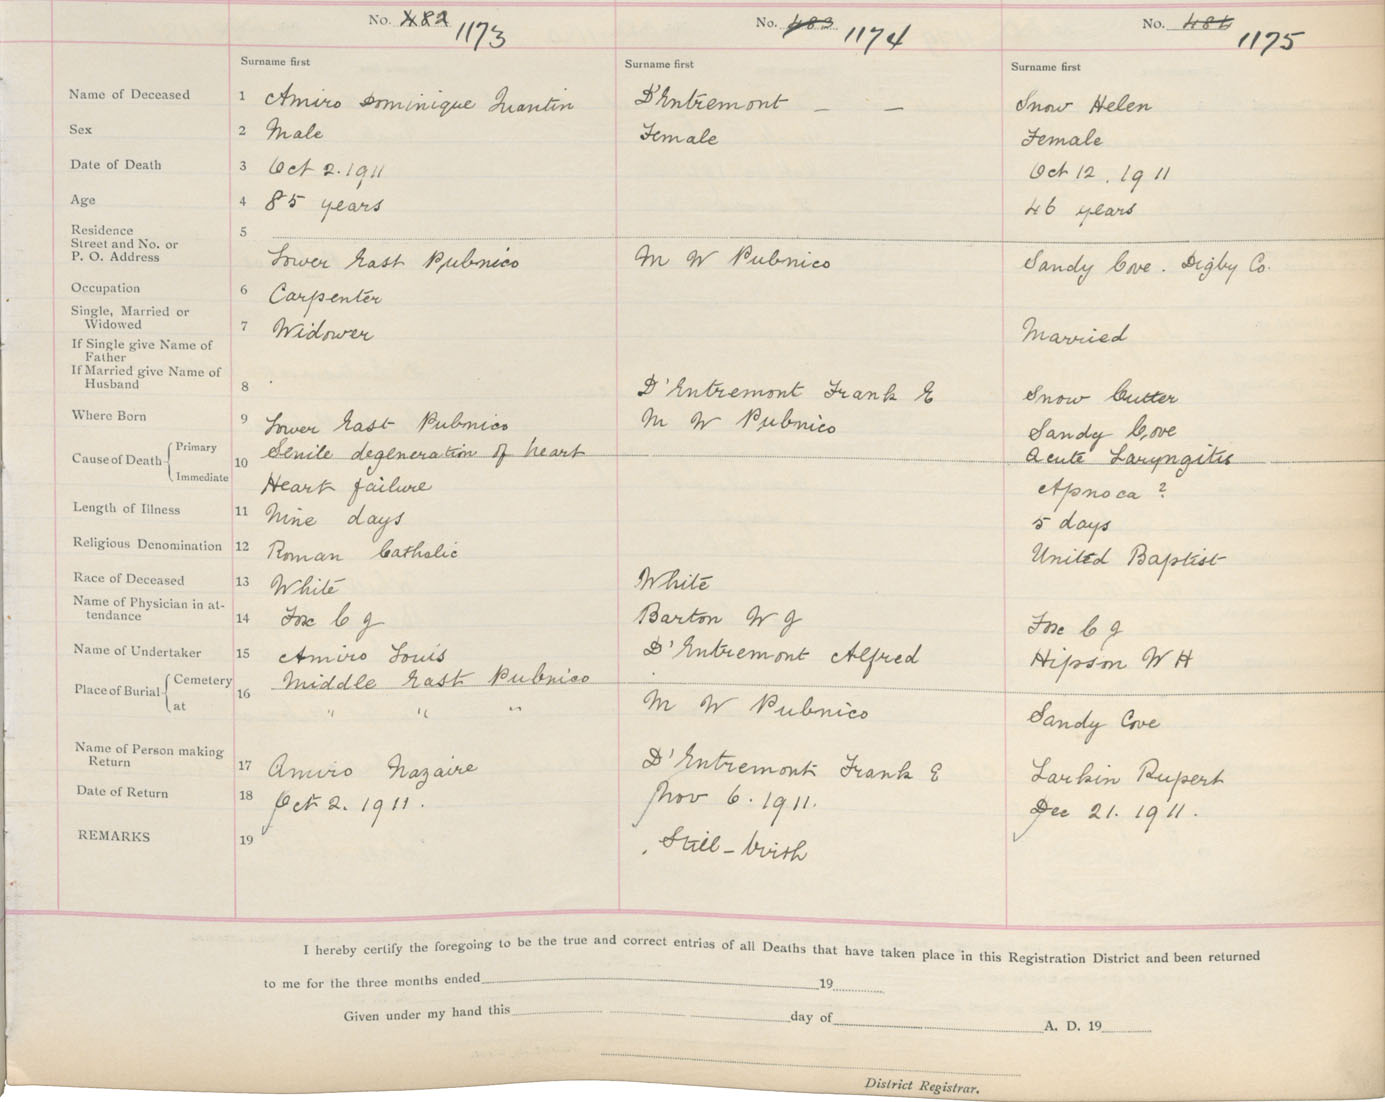 No. 482 1173
No. 483 1174
No. 484 1175
Surname first
Surname first
Surname first
Name of Deceased 1 Amiro Dominique Quantin D'Entremont — — Snow Helen
Sex 2 Male Female Female
Date of Death 3 Oct 2. 1911 Oct 12. 1911
Age 4 85 years 46 years
Residence 5
Street and No. or
P. O. Address Lower East Pubnico M W Pubnico Sandy Cove. Digby Co.
Occupation 6 Carpenter
Single, Married or
Widowed 7 Widower Married
If Single give Name of
Father
If Married give Name of
Husband 8 D'Entremont Frank E Snow Cutter
Where Born 9 Lower East Pubnico M W Pubnico Sandy Cove
Cause of Death Primary 10 Senile degeneration of heart Acute Laryngitis
Immediate Heart failure Apnoca ?
Length of Illness 11 Nine days 5 days
Religious Denomination 12 Roman Catholic United Baptist
Race of Deceased 13 White White
Name of Physician in at-
tendance 14 Fox C J Barton W J Fox C J
Name of Undertaker 15 Amiro Louis D'Entremont Alfred Hipson W H
Place of Burial Cemetery 16 Middle East Pubnico
at " " " M W Pubnico Sandy Cove
Name of Person making
Return 17 Amiro Nazaire D'Entremont Frank E Larkin Rupert
Date of Return 18 Oct 2. 1911. Nov 6. 1911. Dec 21. 1911.
REMARKS 19 Still-birth
I hereby certify the foregoing to be the true and correct entries of all Deaths that have taken place in this Registration District and been returned
to me for the three months ended 19
Given under my hand this day of A. D. 19
District Registrar.